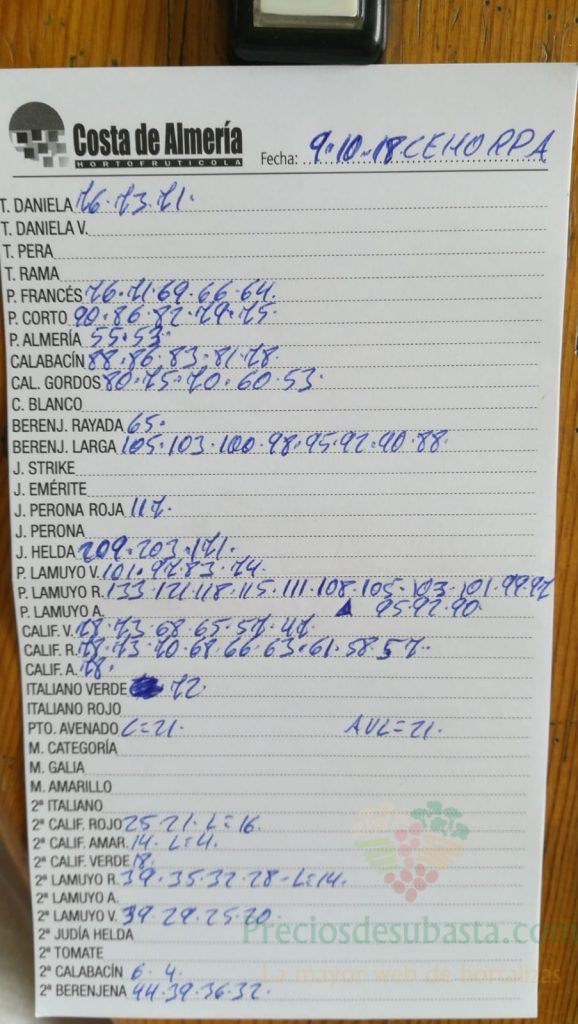 Costa de Almería
HORTOFRUTICOLA
Fecha: 9-10-18 CEHORPA
T. DANIELA 76·73·71·
T. DANIELA V.
T. PERA
T. RAMA
P. FRANCÉS 76·71·69·66·64·
P. CORTO 90·86·82·79·75·
P. ALMERÍA 55·53·
CALABACÍN 88·86·83·81·78·
CAL. GORDOS 80·75·70·60·53·
C. BLANCO
BERENJ. RAYADA 65·
BERENJ. LARGA 105·103·100·98·95·92·90·88·
J. STRIKE
J. EMÉRITE
J. PERONA ROJA 117·
J. PERONA
J. HELDA 209·203·171·
P. LAMUYO V. 101·97·83·74·
P. LAMUYO R. 133·121·118·115·111·108·105·103·101·99·97
P. LAMUYO A. ▲ 95·92·90·
CALIF. V. 78·73·68·65·57·47·
CALIF. R. 78·73·70·68·66·63·61·58·57·
CALIF. A. 78·
ITALIANO VERDE 72·
ITALIANO ROJO
PTO. AVENADO L=21· AVL=21·
M. CATEGORÍA
M. GALIA
M. AMARILLO
2ª ITALIANO
2ª CALIF. ROJO 25·21·L=16·
2ª CALIF. AMAR. 14·L=4·
2ª CALIF. VERDE 18·
2ª LAMUYO R. 39·35·32·28·L=14·
2ª LAMUYO A.
2ª LAMUYO V. 39·29·25·20·
2ª JUDÍA HELDA
2ª TOMATE
2ª CALABACÍN 6·4·
2ª BERENJENA 44·39·36·32·
Preciosdesubasta.com
La mayor web de hortalizas